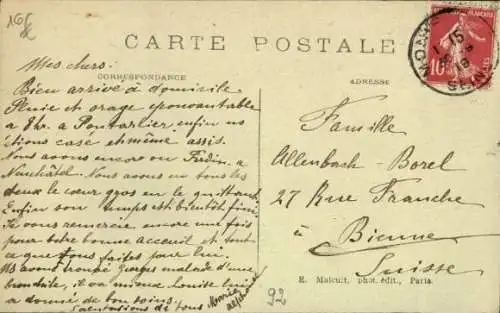 165
CARTE POSTALE
CORRESPONDANCE
ADRESSE
Mes chers.
Bien arrivé à domicile
Pluie et orage épouvantable
à 8hr. à Pontarlier enfin nous
étions casé et même assis.
Nous avons encore vu Frédin. à
Neuchâtel. Nous avons eu tous les
deux le cœur gros en le quittant.
Enfin son temps est bientôt fini
Je vous remercie encore une fois
pour votre bonne acceuil et tout
ce que vous faites pour lui.
Ns avons trouvé malade d'une
bronchite, il va mieux Louise lui
a donné de bon soins.
Salutations de tous
Famille
Allenbach-Borel
27 Rue Franche
à Bienne
Suisse
E. Malcuit, phot. édit., Paris.
92
10